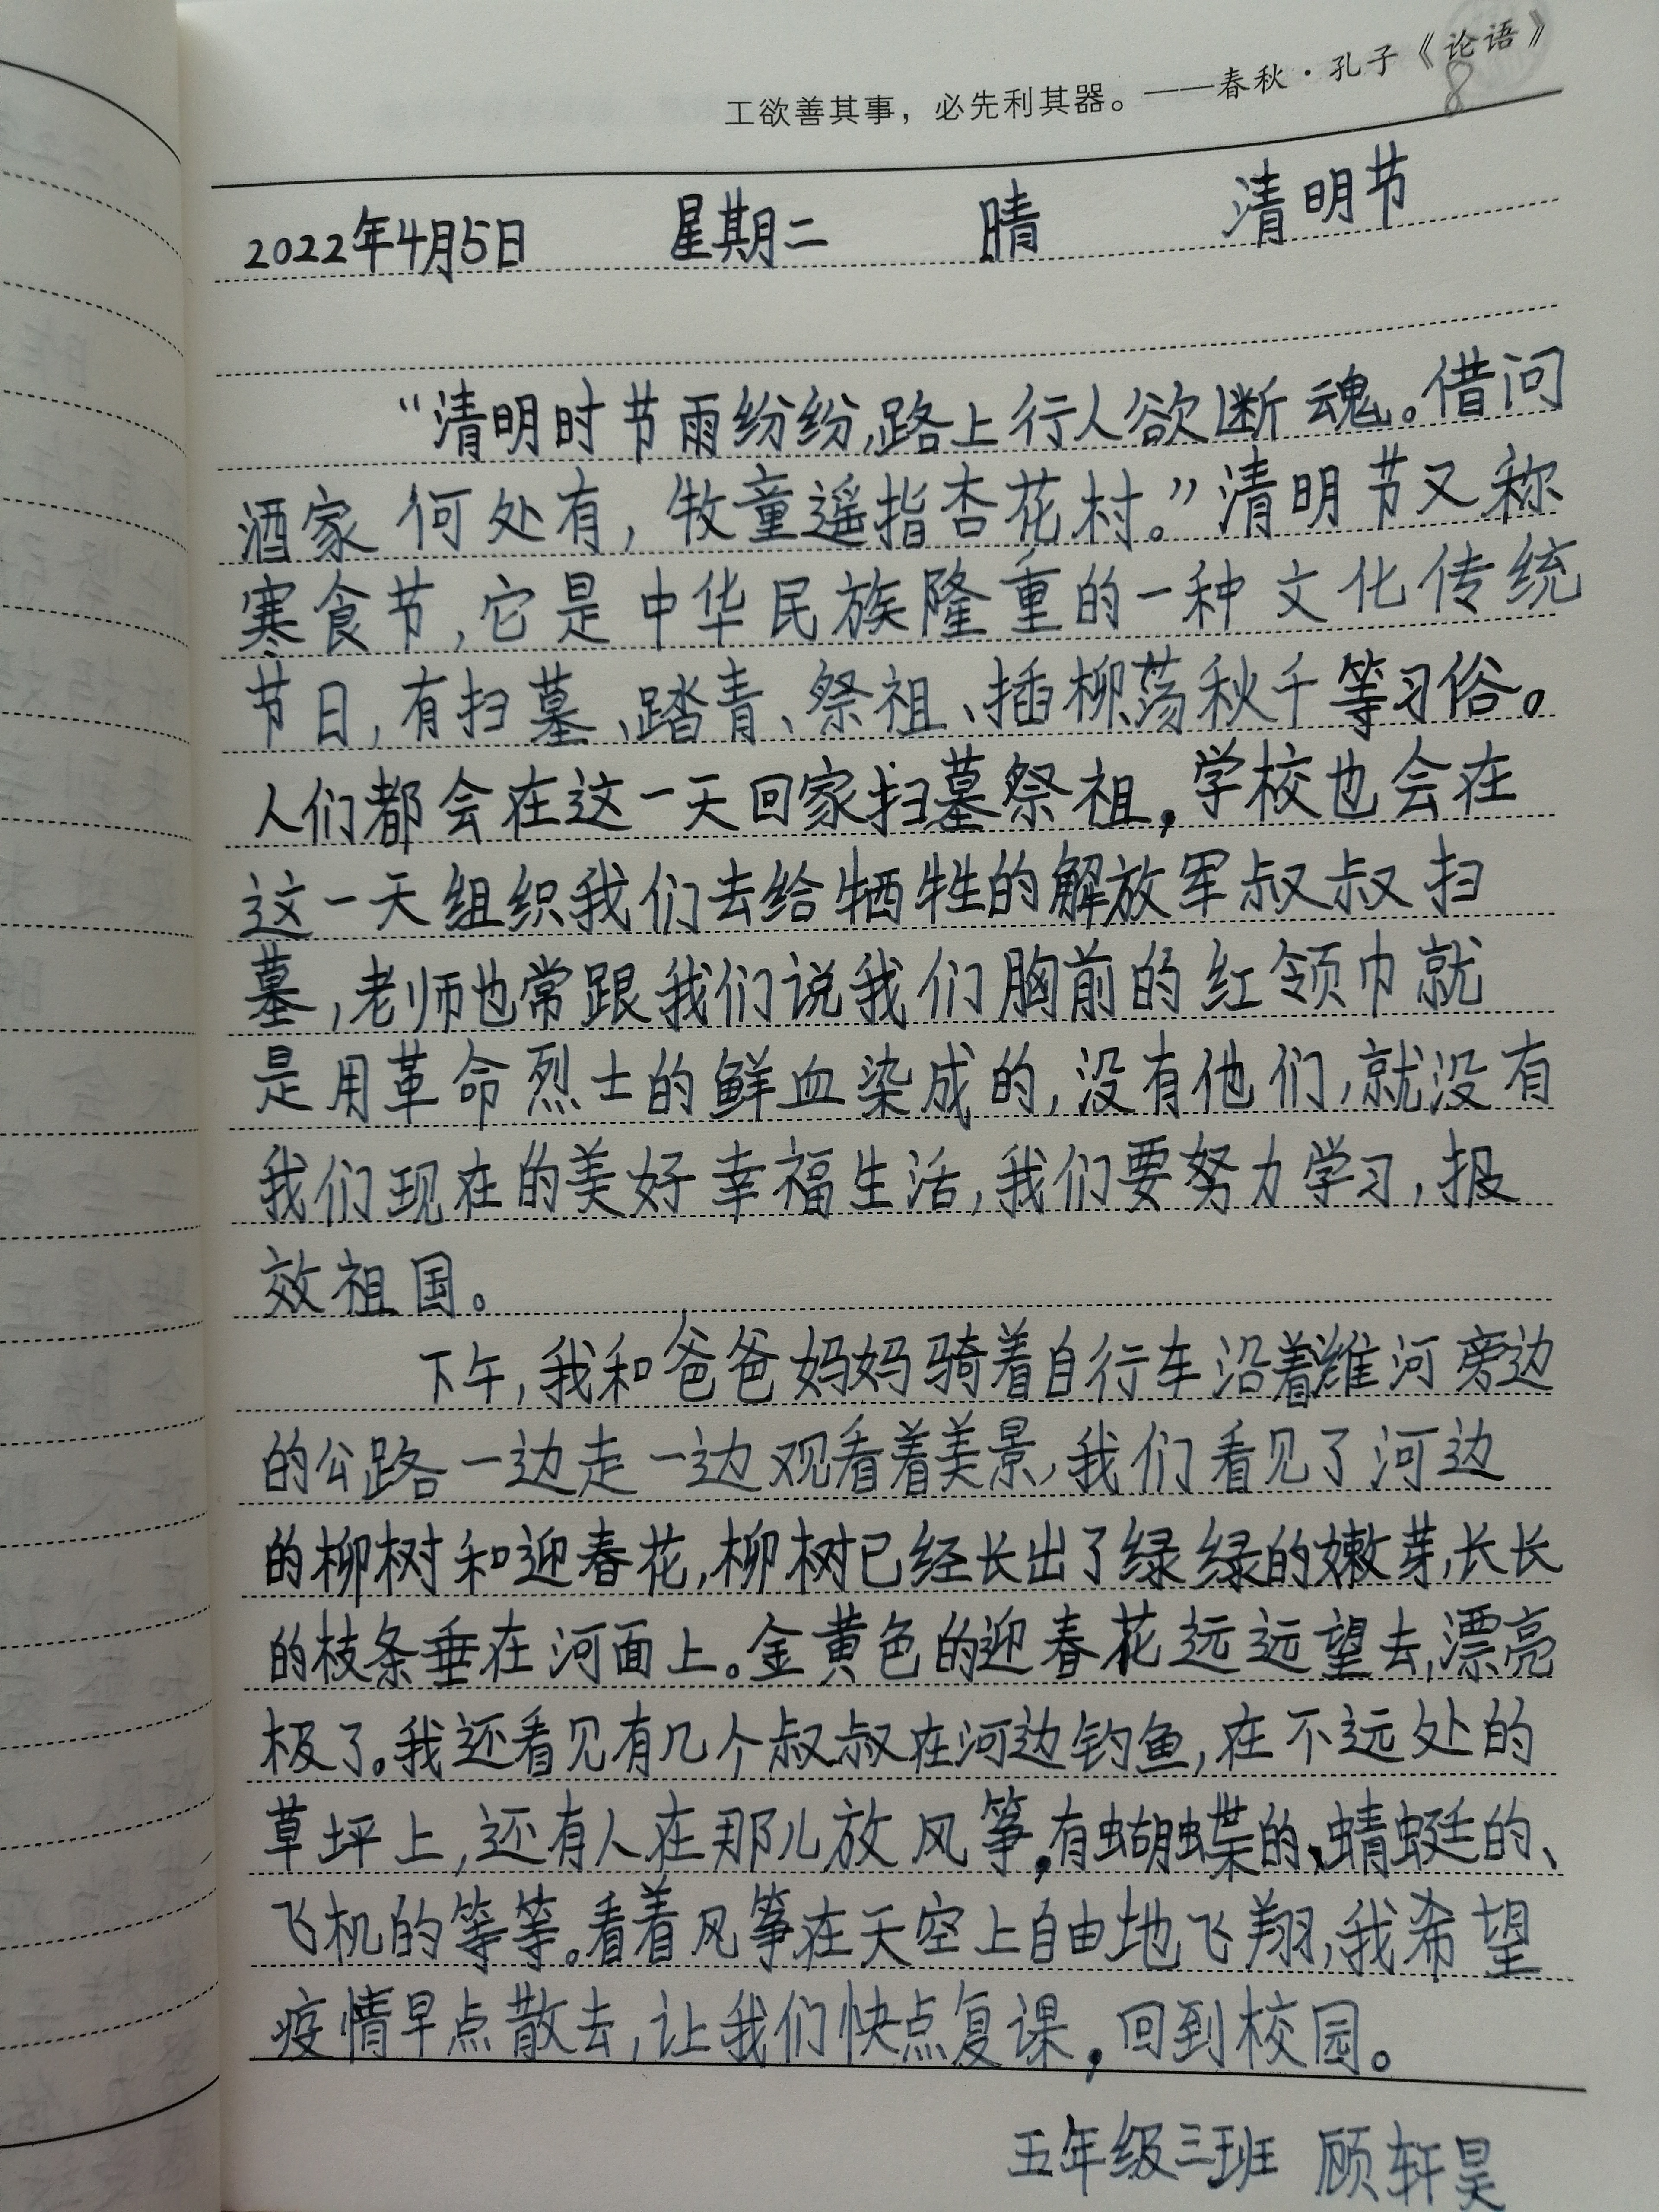 工欲善其事，必先利其器。——春秋·孔子《论语》
8
2022年4月5日 星期二 晴 清明节
“清明时节雨纷纷,路上行人欲断魂。借问
酒家何处有，牧童遥指杏花村。”清明节又称
寒食节,它是中华民族隆重的一种文化传统
节日,有扫墓、踏青、祭祖、插柳荡秋千等习俗。
人们都会在这一天回家扫墓祭祖,学校也会在
这一天组织我们去给牺牲的解放军叔叔扫
墓,老师也常跟我们说我们胸前的红领巾就
是用革命烈士的鲜血染成的,没有他们,就没有
我们现在的美好幸福生活,我们要努力学习,报
效祖国。
下午,我和爸爸妈妈骑着自行车沿着潍河旁边
的公路一边走一边观看着美景,我们看见了河边
的柳树和迎春花,柳树已经长出了绿绿的嫩芽,长长
的枝条垂在河面上。金黄色的迎春花远远望去,漂亮
极了。我还看见有几个叔叔在河边钓鱼,在不远处的
草坪上,还有人在那儿放风筝,有蝴蝶的、蜻蜓的、
飞机的等等。看着风筝在天空上自由地飞翔,我希望
疫情早点散去,让我们快点复课,回到校园。
五年级三班 顾轩昊